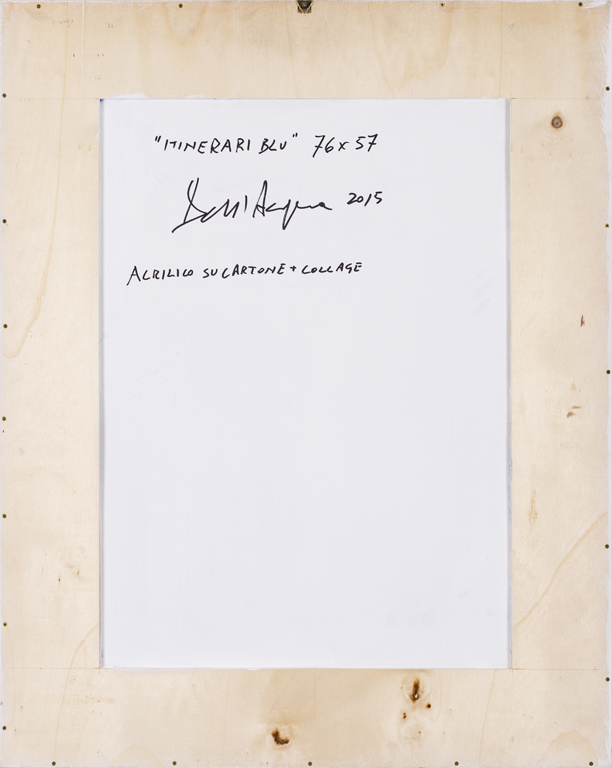 "ITINERARI BLU" 76x57
Dell'Acqua 2015
ACRILICO SU CARTONE + COLLAGE